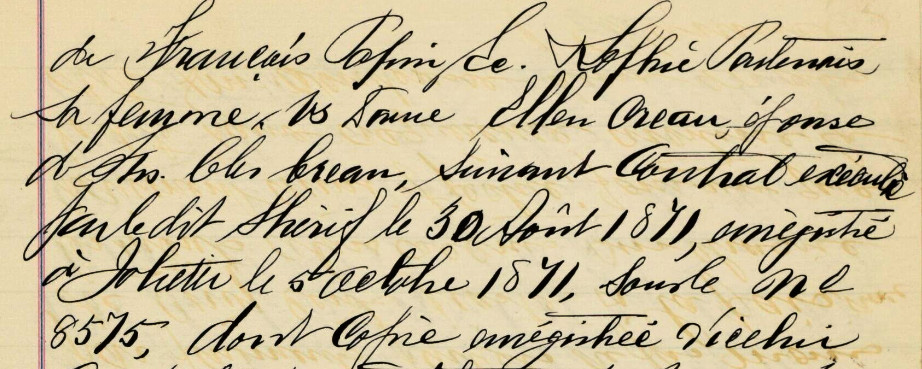 de François Pepin &c. Sophie Partenais
sa femme, vs Dame Ellen Creau, épouse
de Chs. Crean, suivant Contrat exécuté
par ledit Shérif le 30 Août 1871, enrégistré
à Joliette le 5 Octobre 1871, sous le No
8575, dont Copie enrégistrée d'icelui